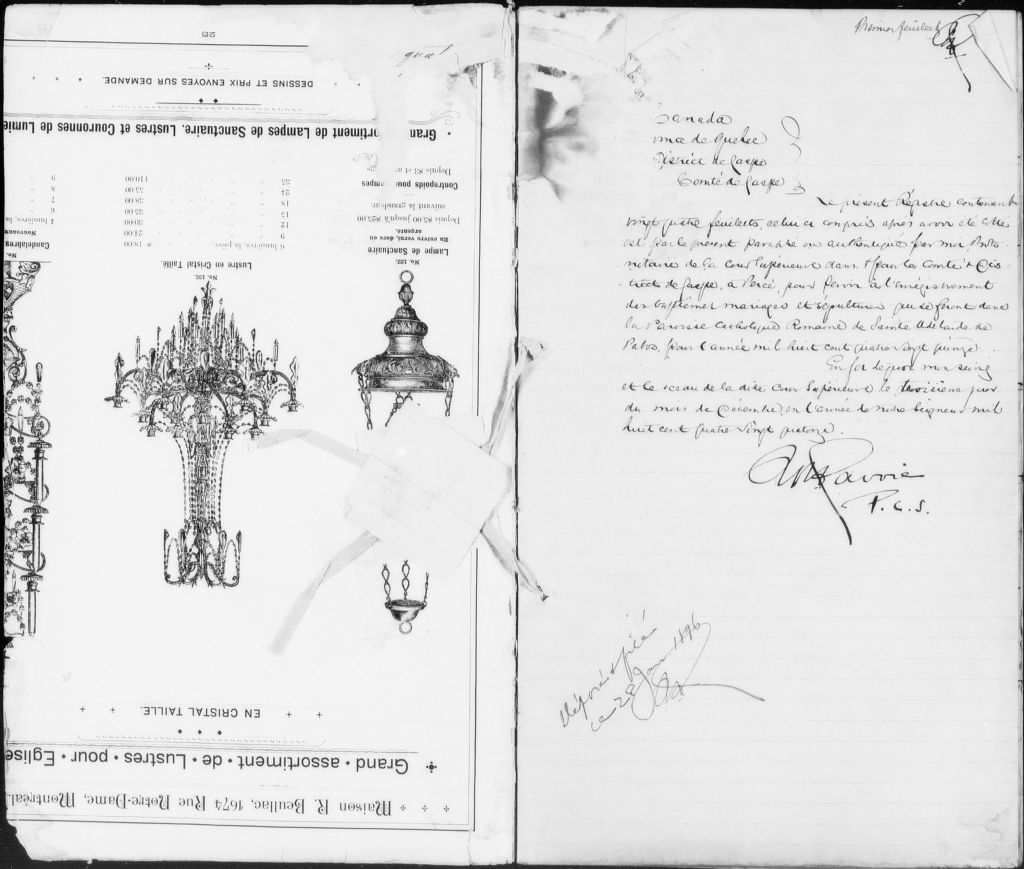 Maison R. Beullac, 1674 Rue Notre-Dame, Montréal.
Grand assortiment de Lustres pour Eglise
EN CRISTAL TAILLE.
No. 122.
Lampe de Sanctuaire
En cuivre verni, doré ou
argenté.
Depuis $5.00 jusqu'à $25.00
suivant la grandeur.
Contrepoids pour ampes
Depuis $3 et a
No. 131.
Lustre en Cristal Taillé.
6 lumières, la pièce, $ 18.00
9 24.00
12 30.00
15 35.00
18 38.00
24 55.00
35 110.00
No.
Candelabres
Nouveaux
4 lumières, la
6
7
8
9
Gran ortiment de Lampes de Sanctuaire, Lustres et Couronnes de Lumie
DESSINS ET PRIX ENVOYES SUR DEMANDE.
25
qual
Premier feuillet
Canada
ince de Quebec
District de Gaspé
Comté de Gaspé
Le présent Régistre contenant
vingt quatre feuillets, celui ci compris après avoir été côté
est par le présent paraphé ou authentiqué par moi, Proto
-notaire de la Cour Supérieure dans & pour le Comté & Dis
-trict de Gaspé, à Percé, pour servir à l'enrégistrement
des baptêmes mariages et sépultures qui se feront dans
la Paroisse Catholique Romaine de Sainte Adelaide de
Pabos, pour l'année mil huit cent quatre vingt quinze.
En foi de quoi mon seing
et le sceau de la dite Cour Supérieure le troisième jour
du mois de Décembre, en l'année de notre Seigneur mil
huit cent quatre vingt quatorze.
Lavoie
P. C. S.
Déposé &
ce 28 Janv 1896